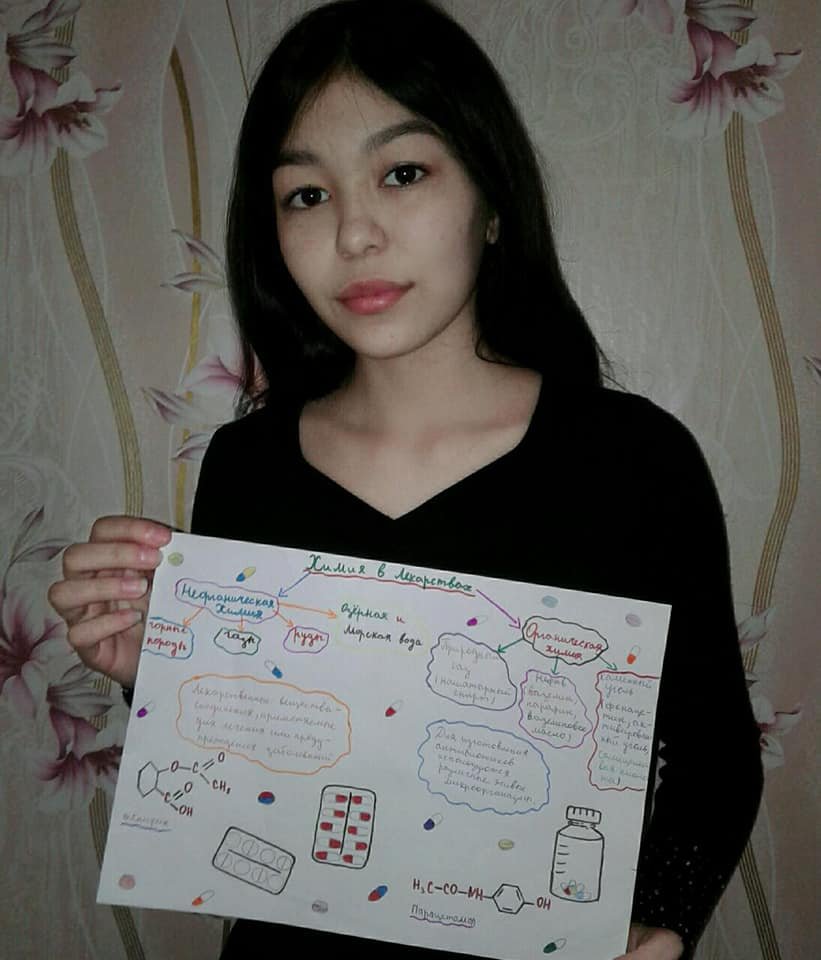 Химия в лекарствах
Неорганическая
химия
горные
породы
газы
руды
озёрная и
морская вода
Органическая
химия
природный
газ
(нашатырный
спирт)
Нефть
(вазелин,
парафин,
вазелиновое
масло)
каменный
уголь
Лекарственные вещества -
соединения, применяемые
для лечения или преду-
преждения заболеваний
Для изготовления
антибиотиков
используются
различные живые
O
C
O
CH₃
C
O
OH
аспирин
H₃C-CO-NH
OH
Парацетамол